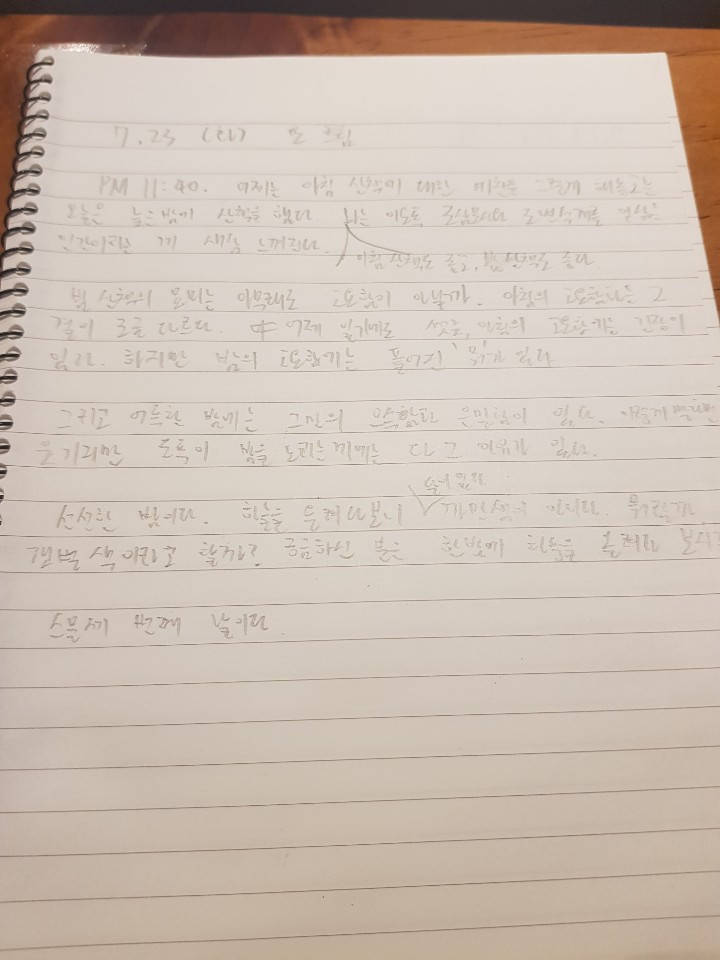 7. 23 (화) 또 흐림
PM 11:40. 어제는 아침 산책에 대한 예찬을 그렇게 해놓고는
오늘은 늦은밤에 산책을 했다 나는 이토록 조삼모사와 조변석개를 일삼는
인간이라는 게 새삼 느껴진다.
아침산책도 좋고, 밤산책도 좋다
밤 산책의 묘미는 아무래도 고요함이 아닐까. 아침의 고요함과는 그
결이 조금 다르다. 어제 일기에도 썼듯, 아침의 고요함에는 긴장이
있다. 하지만 밤의 고요함에는 풀어진 '뭔'가 있다
그리고 어둑한 밤에는 그만의 오싹함과 은밀함이 있다. 이렇게 말하면
웃기지만 도둑이 밤을 노리는 데에는 다 그 이유가 있다.
선선한 밤이다. 하늘을 올려다보니 까만색이 아니다. 뭐랄까
색이라고 할까? 궁금하신 분은 한밤에 하늘을 올려다 보시길
스물세 번째 날이다.